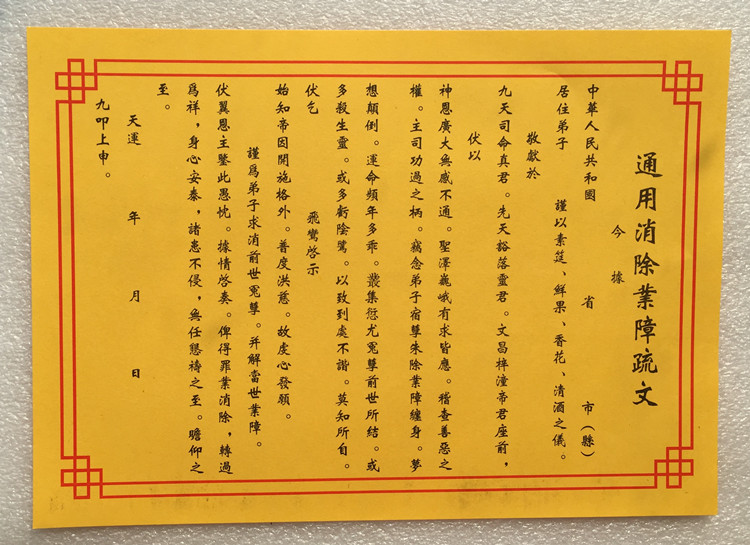 通用消除業障疏文
今據
中華人民共和國　省　市（縣）
居住弟子　謹以素筵、鮮果、香花、清酒之儀。
敬獻於
九天司命真君。先天豁落靈君。文昌梓潼帝君座前，
伏以
神恩廣大無感不通。聖澤巍峨有求皆應。稽查善惡之
權。主司功過之柄。竊念弟子宿孽未除業障纏身。夢
想顛倒。運命頻年多乖。叢集愆尤冤孽前世所結。或
多殺生靈。或多虧陰騭。以致到處不諧。莫知所自。
伏乞　飛鸞啓示
始知帝因開施格外。普度洪慈。故虔心發願。
謹爲弟子求消前世冤孽。并解當世業障。
伏翼恩主鑒此愚忱。據情啓奏。俾得罪業消除，轉過
爲祥，身心安泰，諸患不侵，無任懇禱之至。瞻仰之
至。
九叩上申。
天運　年　月　日